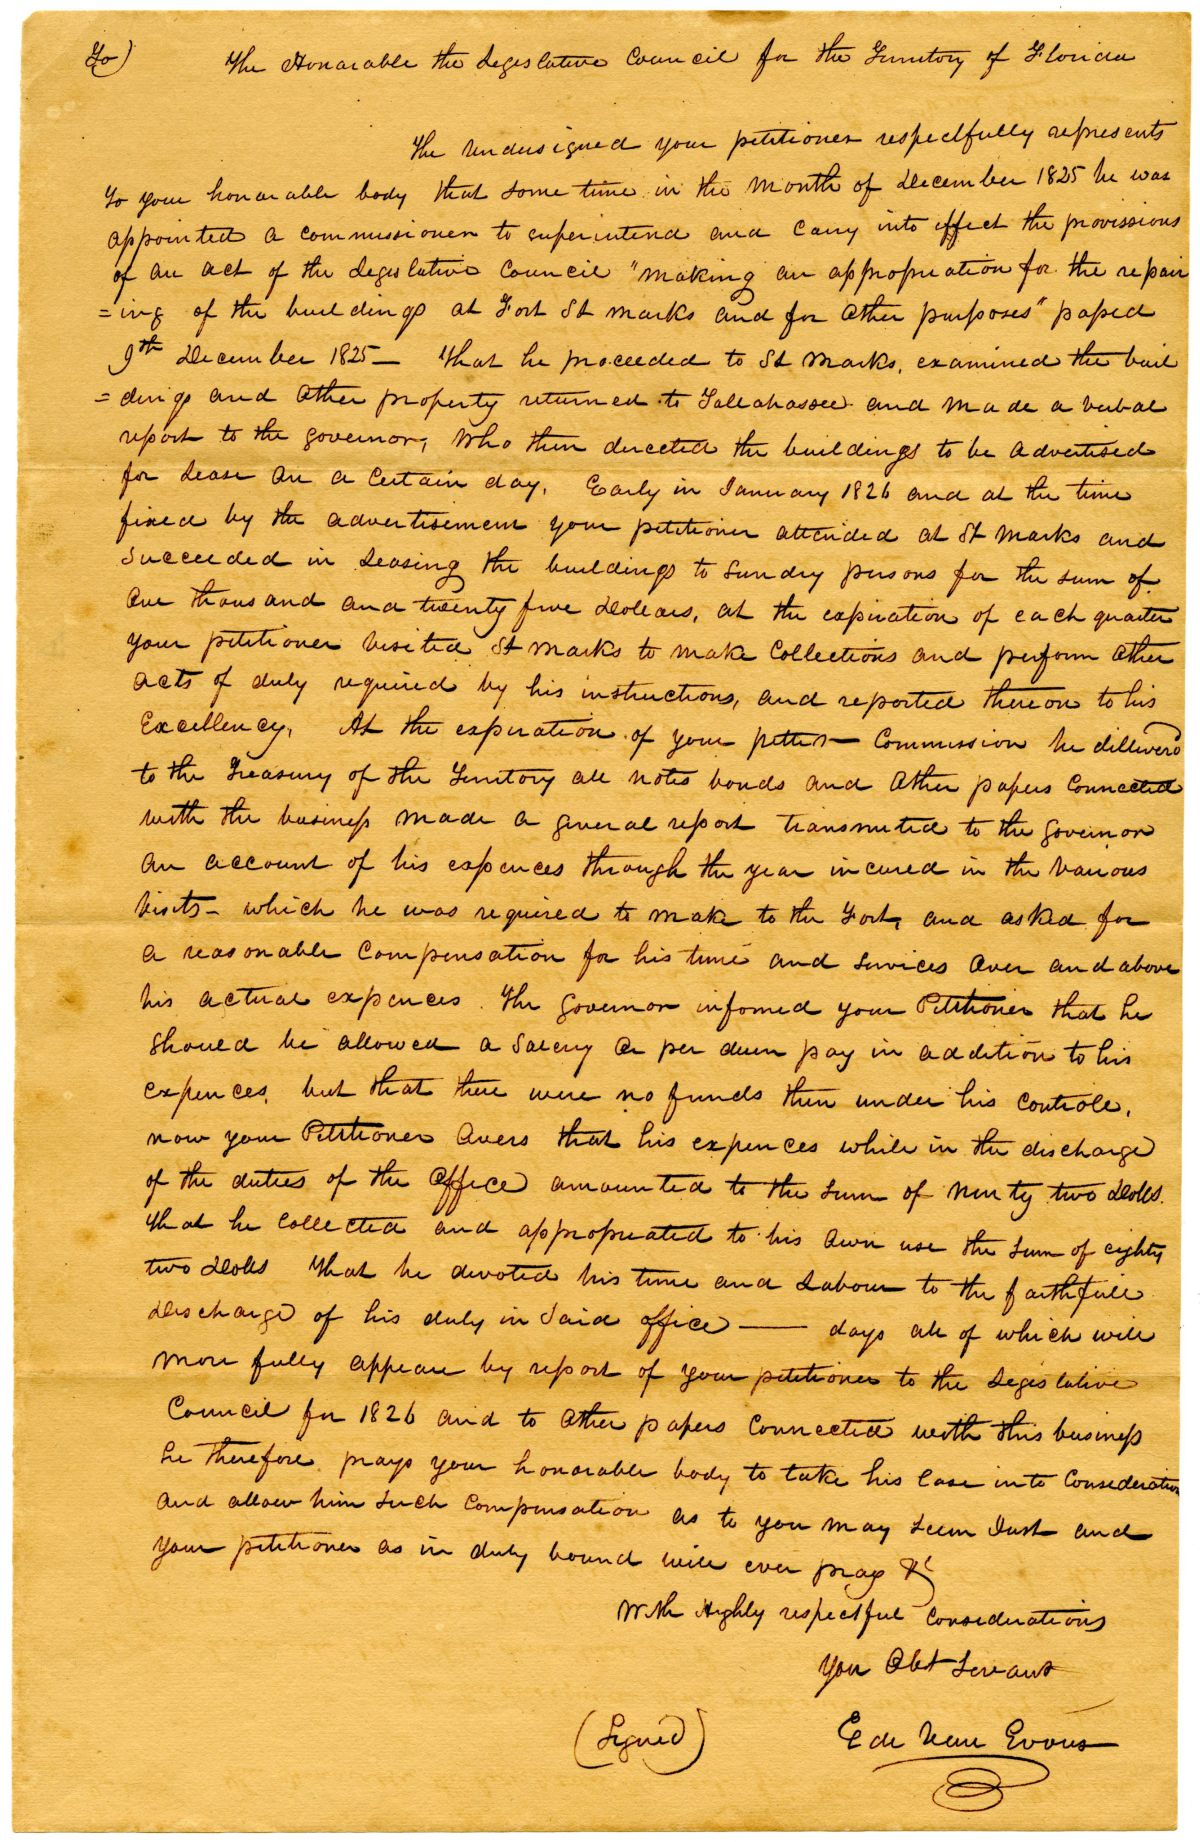 To) The Honarable the Legislative Council for the Territory of Florida
The undersigned your petitioner respectfully represents
To your honarable body that some time in the Month of December 1825 he was
appointed a commissioner to superintend and Carry into effect the provissions
of an act of the Legislative Council "making an appropriation for the repair
=ing of the buildings at Fort St Marks and for other purposes" passed
9th December 1825— That he proceeded to St Marks, examined the buil
=dings and other property returned to Tallahassee and made a verbal
report to the governor, who then directed the buildings to be advertised
for Lease on a Certain day. Early in January 1826 and at the time
fixed by the advertisement your petitioner attended at St Marks and
Succeeded in Leasing the buildings to Sundry persons for the sum of
One thousand and twenty five Dollars, at the expiration of each quarter
your petitioner visited St Marks to make Collections and perform other
acts of duty required by his instructions, and reported thereon to his
Excellency. At the expiration of your pettr— Commission he dilliverd
to the Treasury of the Territory all notes bonds and other papers Connected
with the business made a general report transmited to the Governor
an account of his expences through the year incured in the various
Visits— which he was required to make to the Fort, and asked for
a reasonable Compensation for his time and Services Over and above
his actual expences. The Governor infomed your Petitioner that he
Should be allowed a Salery or per diem pay in addition to his
expences, but that there were no funds then under his Controle.
now your Petitioner Avers that his expences while in the discharge
of the duties of the Office amounted to the Sum of Ninty two Dolls.
That he Collected and appropriated to his Own use the Sum of eighty
two Dolls That he devoted his time and Labour to the faithfull
Discharge of his duty in Said office —— days all of which will
more fully appeare by report of your petitioner to the Legislative
Council for 1826 and to other papers Connected with this business
he therefore prays your honorable body to take his Case into Consideration
and allow him Such Compensation as to you may Seem Just and
your petitioner as in duty bound will ever pray &c
With Highly respectful Considerations
Your Obt Servant
(Signed) Ede Van Evans